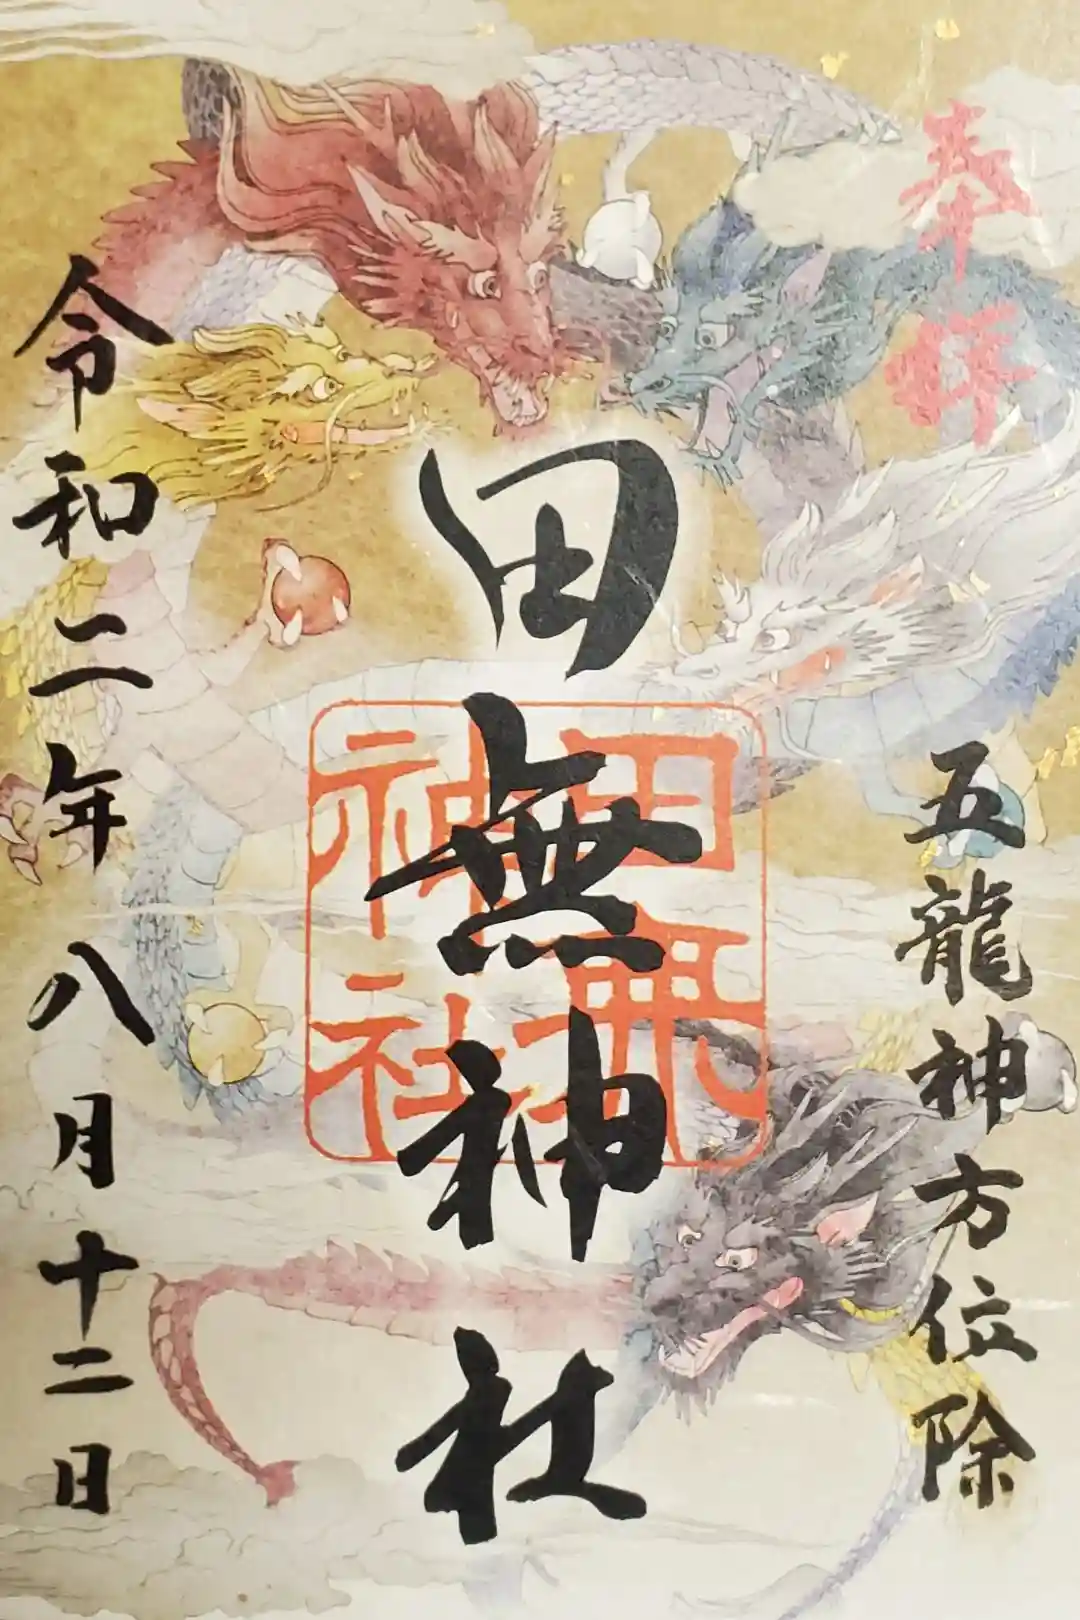 奉拝
五龍神方位除
田無神社
田無
神社
令和二年八月十二日